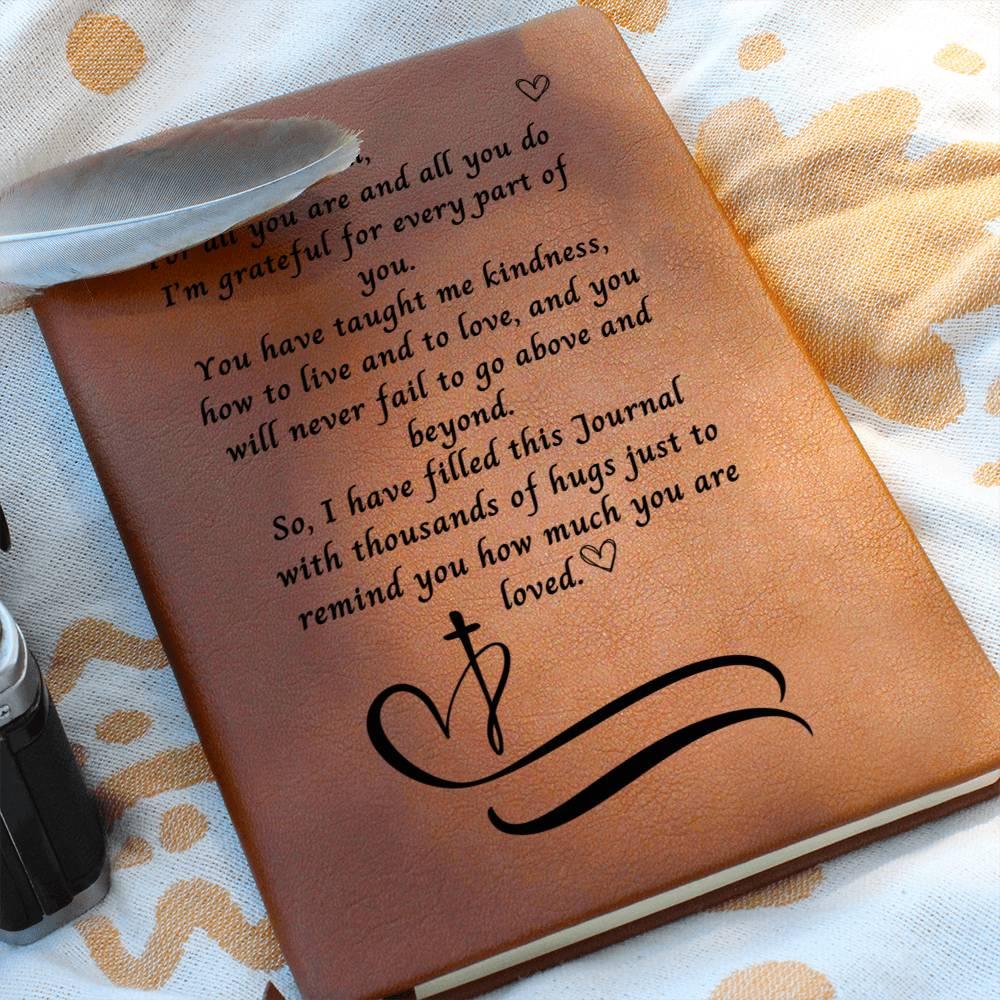 For all you are and all you do
I'm grateful for every part of
you.
You have taught me kindness,
how to live and to love, and you
will never fail to go above and
beyond.
So, I have filled this Journal
with thousands of hugs just to
remind you how much you are
loved.